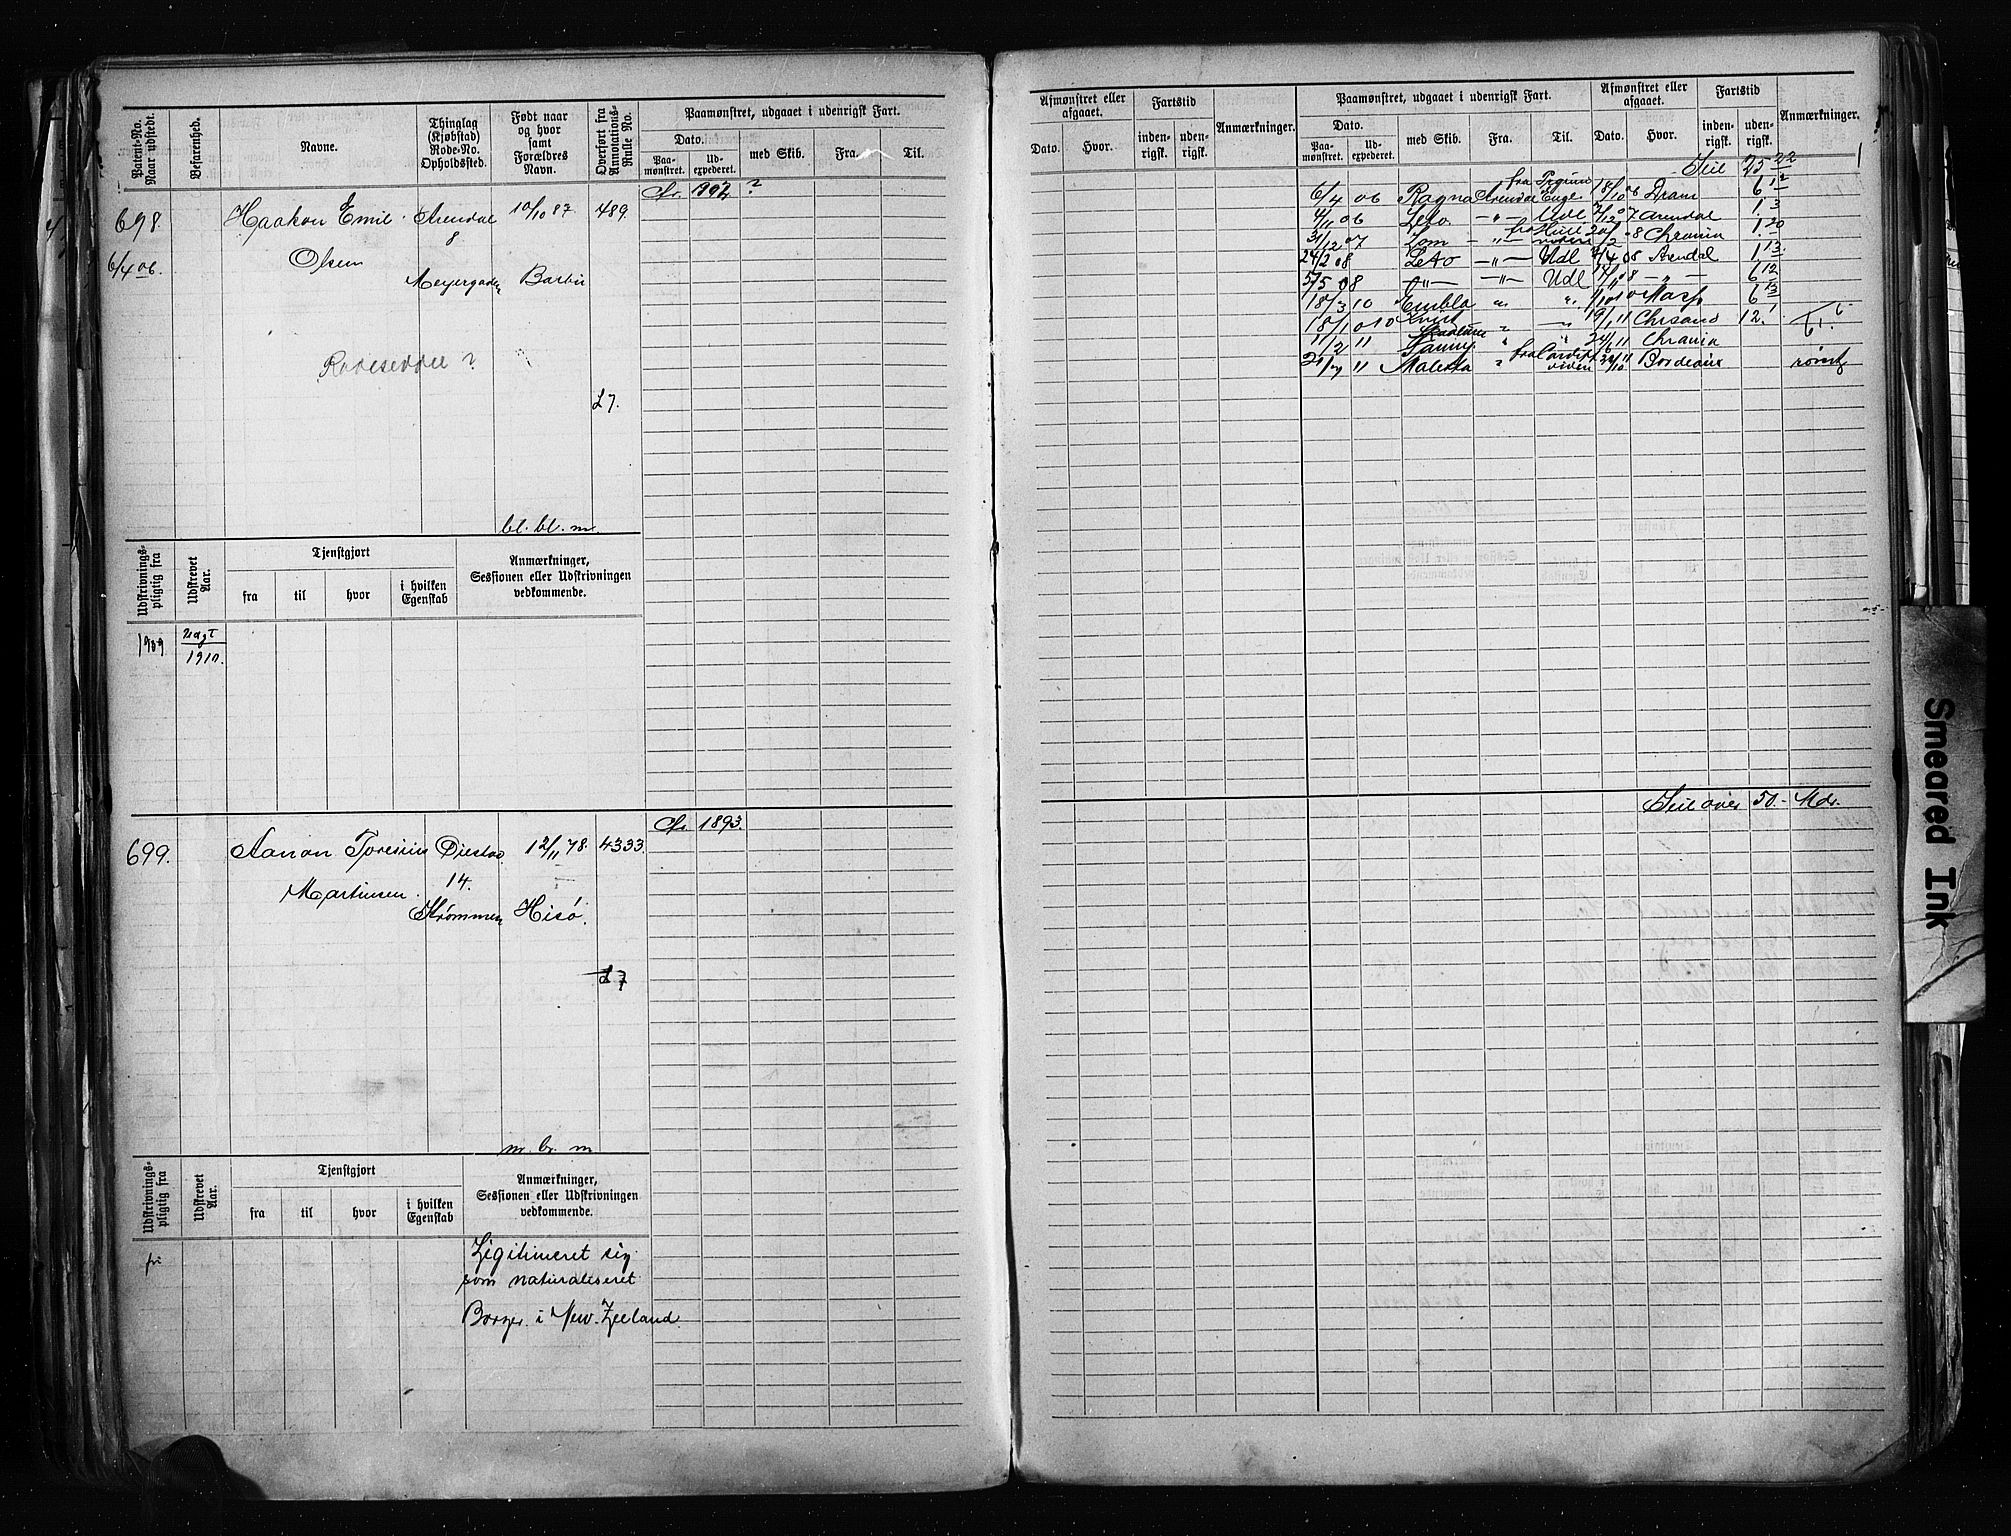 Patent-No. Naar udstedt.
Befarenhed.
Navne.
Thinglag (Kjøbstad) Rode-No. Opholdssted.
Født naar og hvor samt Forældres Navn.
Overført fra Annotations-Rulle No.
Paamønstret, udgaaet i udenrigsk Fart.
Dato.
Paa-mønstret.
Ud-expederet.
med Skib.
Fra.
Til.
698.
6/4 06.
Haakon Emil
Olsen
Arendal
8
Meyergaden
10/10 87.
Barbu
489.
£7.
bl. bl. m.
Udskrivnings-pligtig fra
Udskrevet Aar.
Tjenstgjort
fra
til
hvor
i hvilken Egenskab
Anmærkninger, Sessionen eller Udskrivningen vedkommende.
1909
1910.
699.
Martinsen.
14.
Strømmen
12/11 78.
Hisø.
4333.
Cfr. 1893.
£7
m. br. m
Udskrivnings-pligtig fra
Udskrevet Aar.
Tjenstgjort
fra
til
hvor
i hvilken Egenskab
Anmærkninger, Sessionen eller Udskrivningen vedkommende.
fri
Legitimeret sig
som naturaliseret
Borger i New-Zeeland.
Afmønstret eller afgaaet.
Dato.
Hvor.
Fartstid
inden-rigsk.
uden-rigsk.
Anmærkninger.
Paamønstret, udgaaet i udenrigsk Fart.
Dato.
Paa-mønstret.
Ud-expederet.
med Skib.
Fra.
Til.
Afmønstret eller afgaaet.
Dato.
Hvor.
Fartstid
inden-rigsk.
uden-rigsk.
Anmærkninger.
Seil 25 22
6/4 06 Ragna Arendal 18/10 06 Dram 6 12
06 Leto - " - Udl Arendal 1. 3
31/12 07 - " - fra Hull 8 Chrania 1. 20
24/2 08 Leto - " - Udl Arendal 1 13
5/5 08 - " - - " - Udl 08 - " - 6 12
18/3 10 Embla " " 6 13
18/10 10 " " 19/1 11 Chrsand 12. 1
11/2 11 Fanny " " 11 Chrania
11 fra Cardiff 11 Bordeaux rømt
Seil over 50 - Mdr.
Smeared Ink